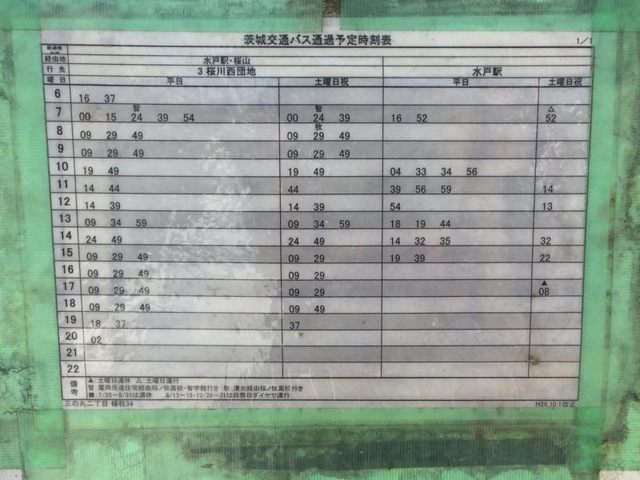 茨城交通バス通過予定時刻表
1/1
経由地 水戸駅・桜山
行先 3 桜川西団地 水戸駅
曜日 平日 土曜日祝 平日 土曜日祝
6 16 37
智 智 △
7 00 15 24 39 54 00 24 39 16 52 52
牧
8 09 29 49 09 29 49
9 09 29 49 09 29 49
10 19 49 19 49 04 33 34 56
11 14 44 44 39 56 59 14
12 14 39 14 39 54 13
13 09 34 59 09 34 59 18 19 44
14 24 49 24 49 14 32 35 32
15 09 29 49 09 29 19 39 22
16 09 29 49 09 29
▲
17 09 29 49 09 29 08
18 09 29 49 09 49
19 18 37 37
20 02
21
22
備考 ▲ 土曜日運休 △ 土曜日運行
智 雇用促進住宅経由桜ノ牧高校・智学館行き 牧 清水経由桜ノ牧高校行き
■ 7/25~8/31は運休 8/13~15・12/29~31は日祭日ダイヤで運行
三の丸二丁目 様社34 H29.10.1改正